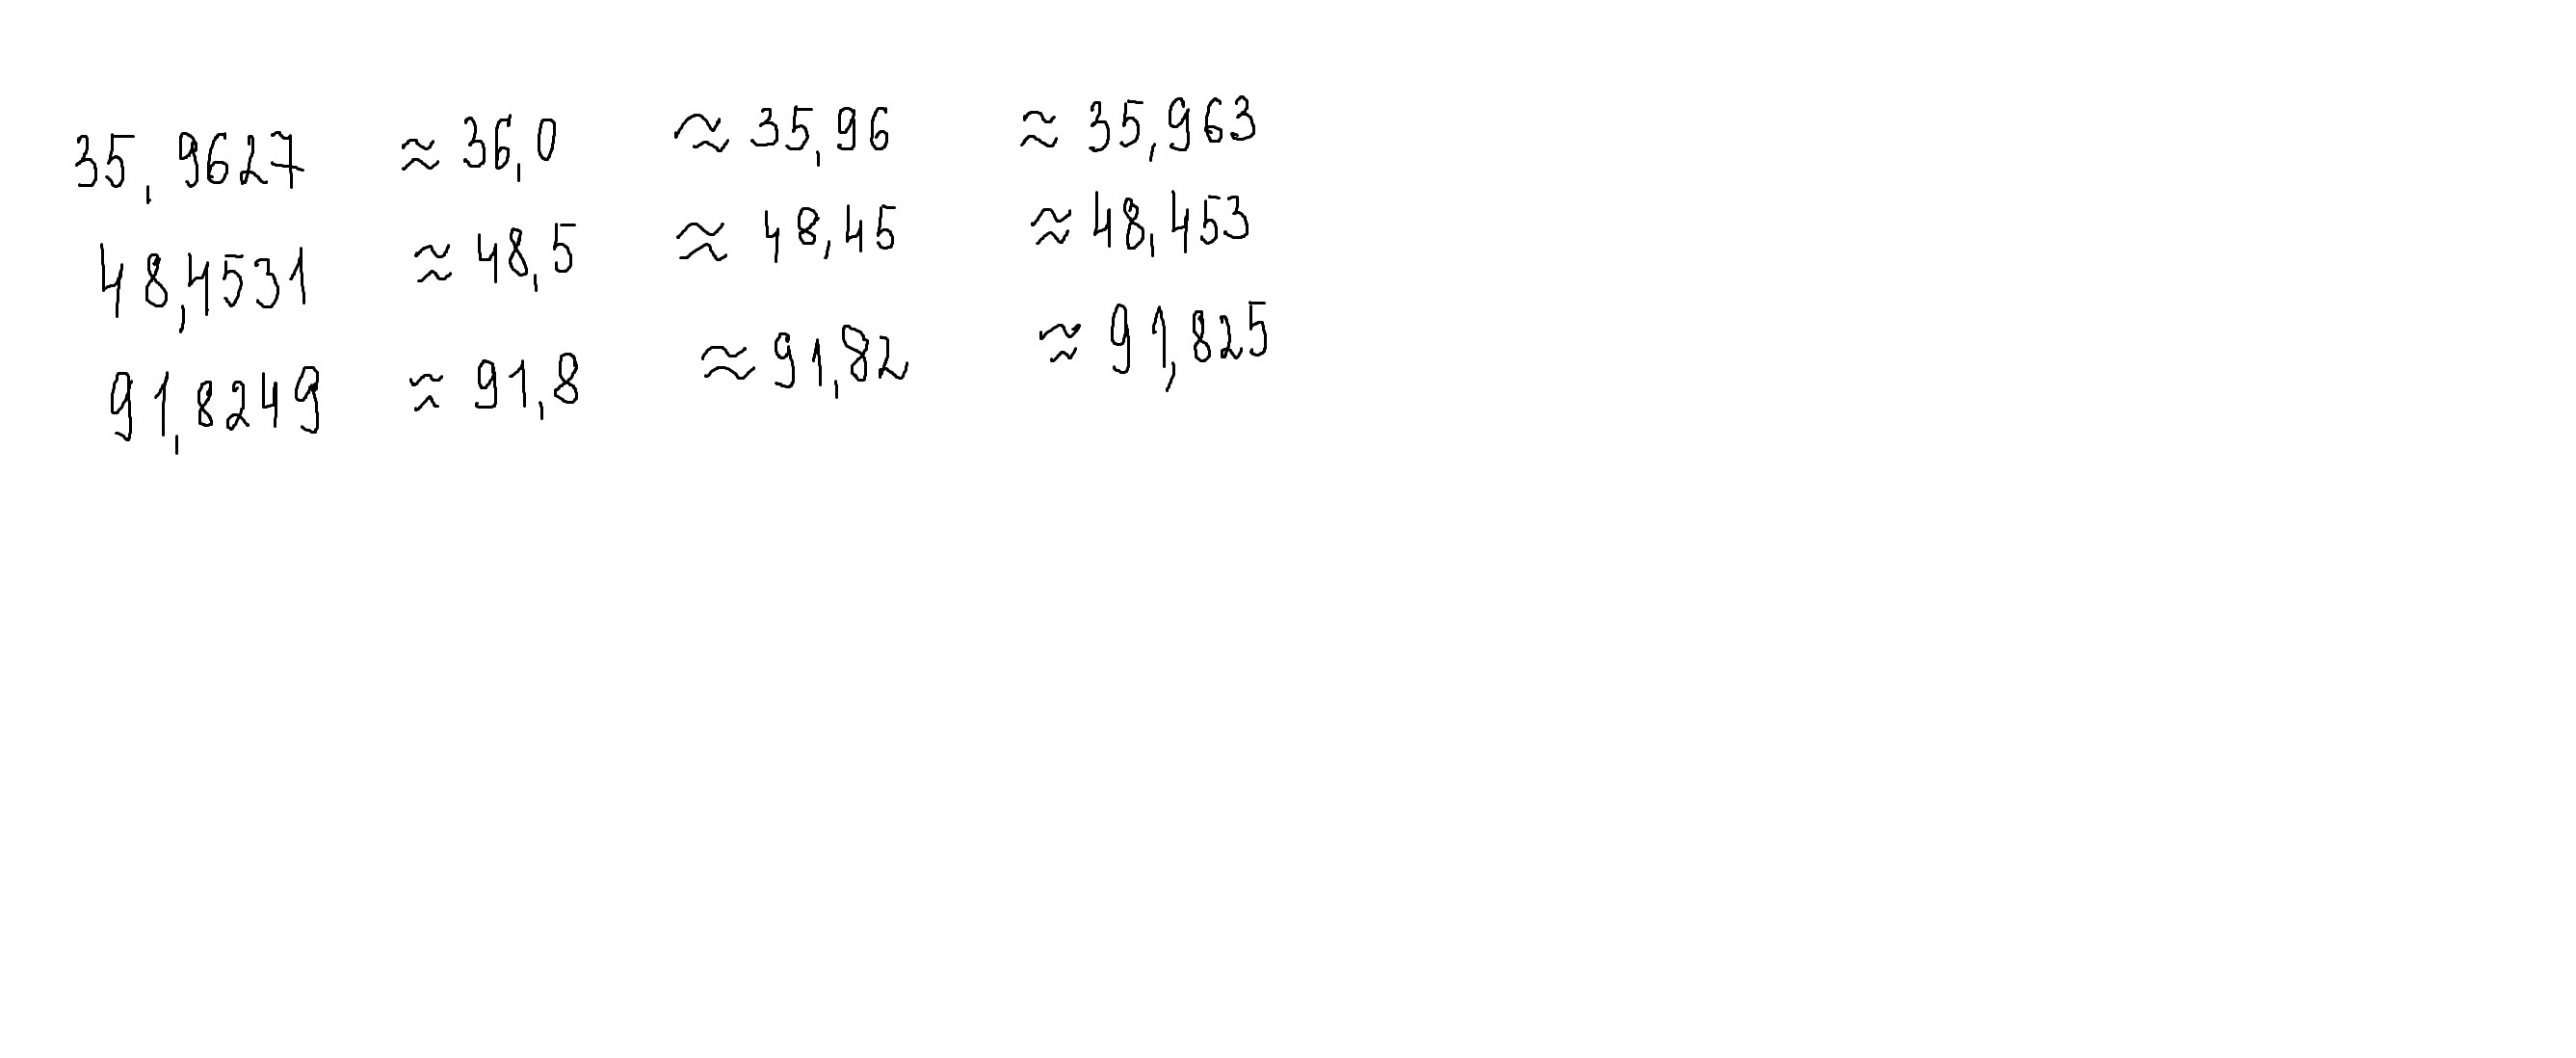 35,9627 ≈ 36,0 ≈ 35,96 ≈ 35,963
48,4531 ≈ 48,5 ≈ 48,45 ≈ 48,453
91,8249 ≈ 91,8 ≈ 91,82 ≈ 91,825